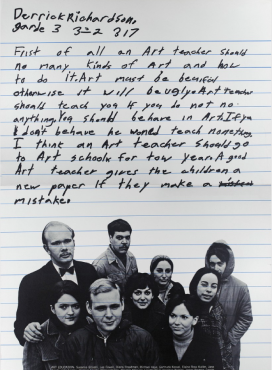 Derrick Richardson,
garde 3 3=2 317
Fiist of all an Art teacher should
no many kinds of Art and how
to do it. Art must be beuiful
otherwise it will be ugly. Art teacher
should teach you if you do not no
anything. You should behave in Art. If you
don't behave he would teach nonething
I think an Art teacher should go
to Art schoolx for tow year. A good
Art teacher gives the children a
new paper if they make a
mistake.